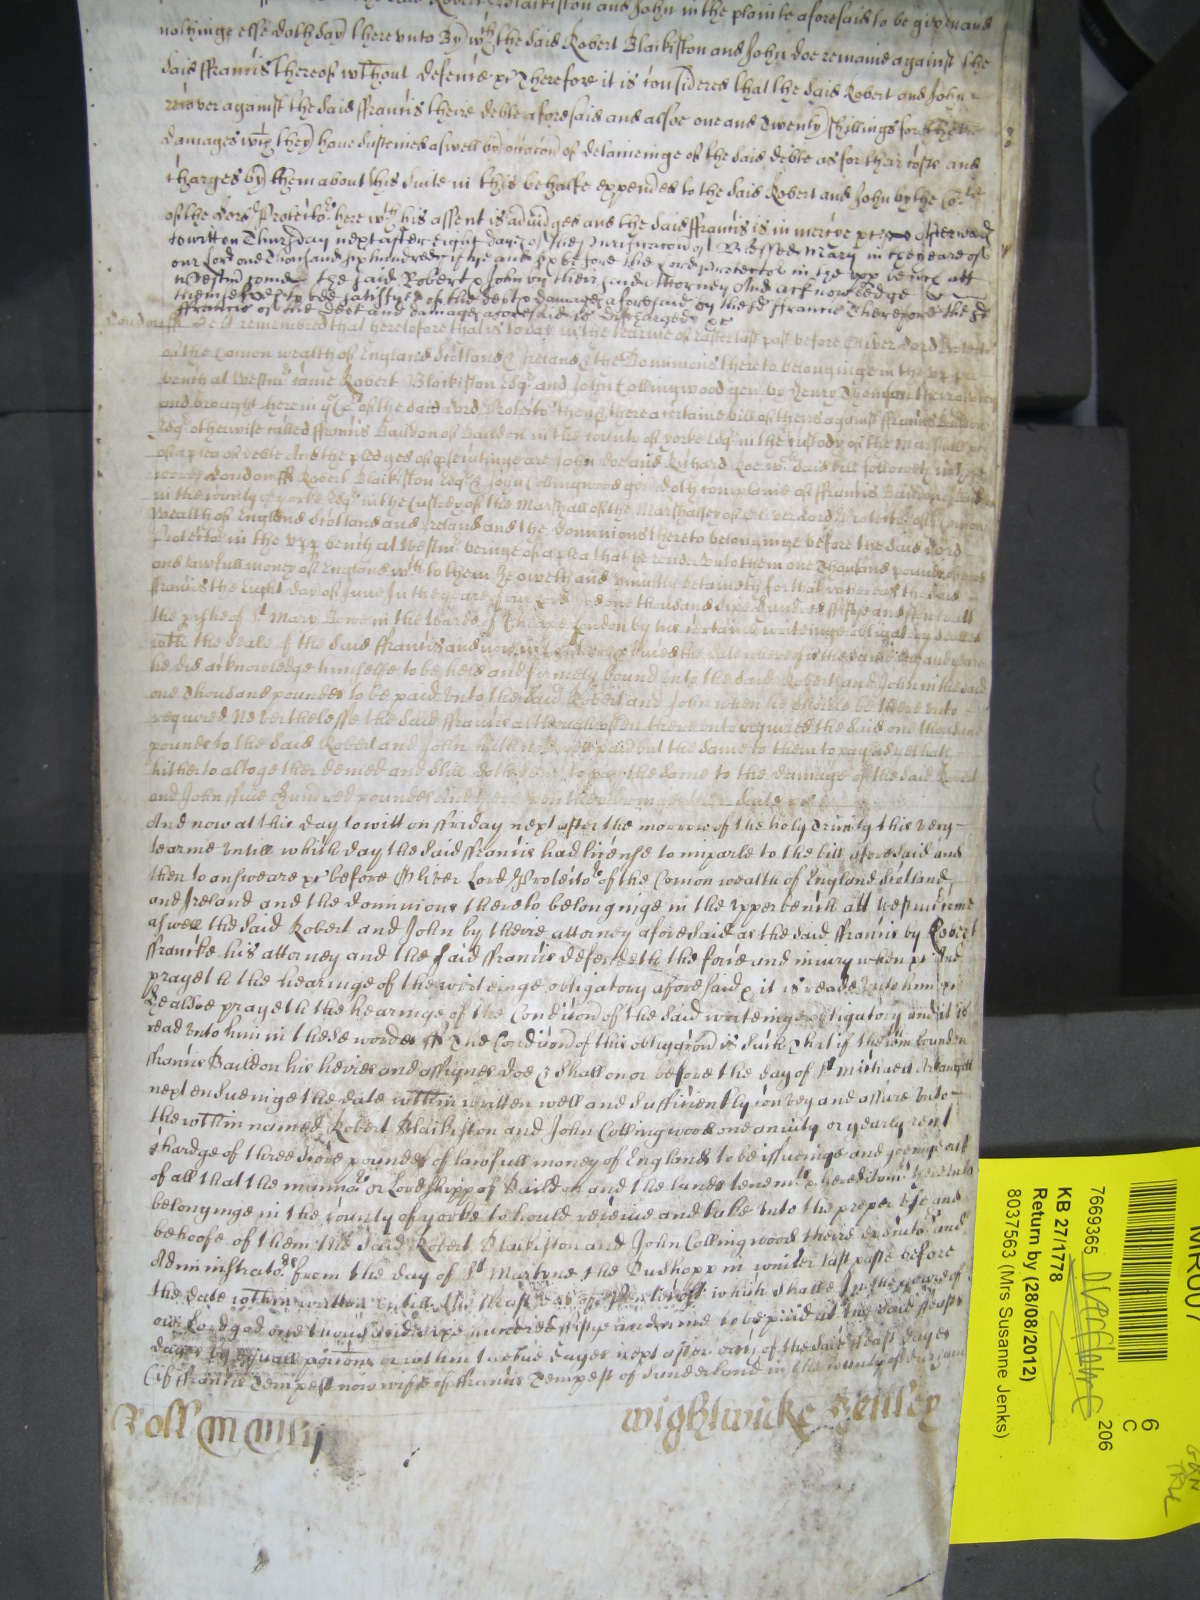 the said Robert Blaikiston and John in the plainte aforesaid to be given and
nothinge else doth say thereunto By wch the said Robert Blaikiston and John doe remaine against the
said ffrancis thereof wthout defence &c Therefore it is considered that the said Robert and John
recover against the said ffrancis theire debte aforesaid and alsoe one and Twenty shillings for theire
damages wch they have susteined aswell by occacon of detaineinge of the said debte as for their costs and
charges by them about his suite in this behalfe expended to the said Robert and John by the Cort
of the Lord Protector here wth his assent is adiudged and the said ffrancis is in mercie &c Afterwards
to witt on Thursday next after Eight dayes of the Purificacon of Blessed Mary in the yeare of
our Lord one thousand six hundred fiftye and six before the Lord Protector in the upper bench att
Westmr come the said Robert & John by their said Attorney And acknowledge
themselves to bee satisfyed of the debt & damages aforesaid by the sd ffrancis Therefore the sd
ffrancis of the debt and damages aforesaid is discharged &c
London ss Be it remembred that heretofore that is to say in the tearme of Easter last past before Oliver Lord Protector
of the Comon wealth of England Scotland & Ireland & the Dominions thereto belonginge in the upper
bench at Westmr came Robert Blaikiston Esqr and John Collingwood gen by Henry Thomson their Attorney
and brought here in ye Cort of the said Lord Protector then & there a certaine bill of theirs against ffrancis Baildon
Esqr otherwise called ffrancis Baildon of Baildon in the county of yorke Esqr in the custody of the Marshall &c
of a plea of debte And the pledges of prosecutinge are John doe and Richard Roe wch said bill followeth in these
wordes London ss Robert Blaikiston Esqr & John Collingwood gen doth complaine of ffrancis Baildon of Baildon
in the county of yorke Esqr in the Custody of the Marshall of the Marshalsey of Oliver Lord Protector of the Comon
wealth of England Scotland and Ireland and the dominions thereto belonginge before the said Lord
Protector in the upper bench at Westmr beinge of a plea that he render unto them one Thousand pounds of good
and lawfull money of England wch to them he oweth and uniustly detaineth for that whereas the said
ffrancis the Eight day of June In the yeare of our Lord God one thousand six hundred fiftye and att
the parishe of St Mary Bowe in the warde of Cheape London by his certaine writeinge obligatory sealed
with the seale of the said ffrancis and now in Court the date whereof is the same day and yeare
he did acknowledge himselfe to be held and firmely bound unto the said Robert and John in the said
one thousand poundes to be paid unto the said Robert and John when he should be there unto
required Neverthelesse the said ffrancis although often there unto required the said one thousand
pounds to the said Robert and John hath not yet paid but the same to them to pay as yet hath
hitherto altogether denied and still doth deny to pay the same to the damage of the said Robert
and John ffive hundred poundes And there upon they bringe their Suite &c
And now at this day to witt on ffriday next after the morrow of the holy Trinity this very
tearme untill which day the said ffrancis had license to imparle to the bill aforesaid and
then to answeare &c before Oliver Lord Protector of the Comon wealth of England Scotland
and Ireland and the dominions thereto belonginge in the upper bench att Westminster
aswell the said Robert and John by theire attorney aforesaid as the said ffrancis by Robert
ffrancke his attorney and the said ffrancis defendeth the force and iniury when &c And
prayeth the hearinge of the writeinge obligatory aforesaid & it is reade unto him &c
he alsoe prayeth the hearinge of the Condicon of the said writeinge obligatory and it is
read unto him in these wordes ss The Condicon of this obligacon is such That if the bounden
ffrancis Baildon his heires and assignes doe & shall on or before the day of St Michaell th'archangell
next ensueinge the date within written well and sufficiently convey and assure unto
the within named Robert Blaikiston and John Collingwood one anuity or yearly rent
chardge of three score poundes of lawfull money of England to be issueinge and goeinge out
of all that the mannor or Lordshipp of Baildon and the landes tenemts & hereditamts thereunto
belonginge in the county of yorke to hould receive and take unto the proper use and
behoofe of them the said Robert Blaikiston and John Collingwood theire executors and
Administrators from the day of St Martyne the Bushopp in winter last paste before
the date within written untill the feast day of Pentecost which shalbe In the yeare of
our Lord god one thousand six hundred fiftye and nine to be paid at the said feast
dayes by equall porcons or within twelve dayes next after every of the said feast dayes
(if ffrancis Tempest now wife of ffrancis Tempest of Sunderland in the county of durham
Roll
Wightwicke Henley
MR007
7669365
KB 27/1178
Return by (28/08/2012)
8037563 (Mrs Susanne Jenks)
6
C
206